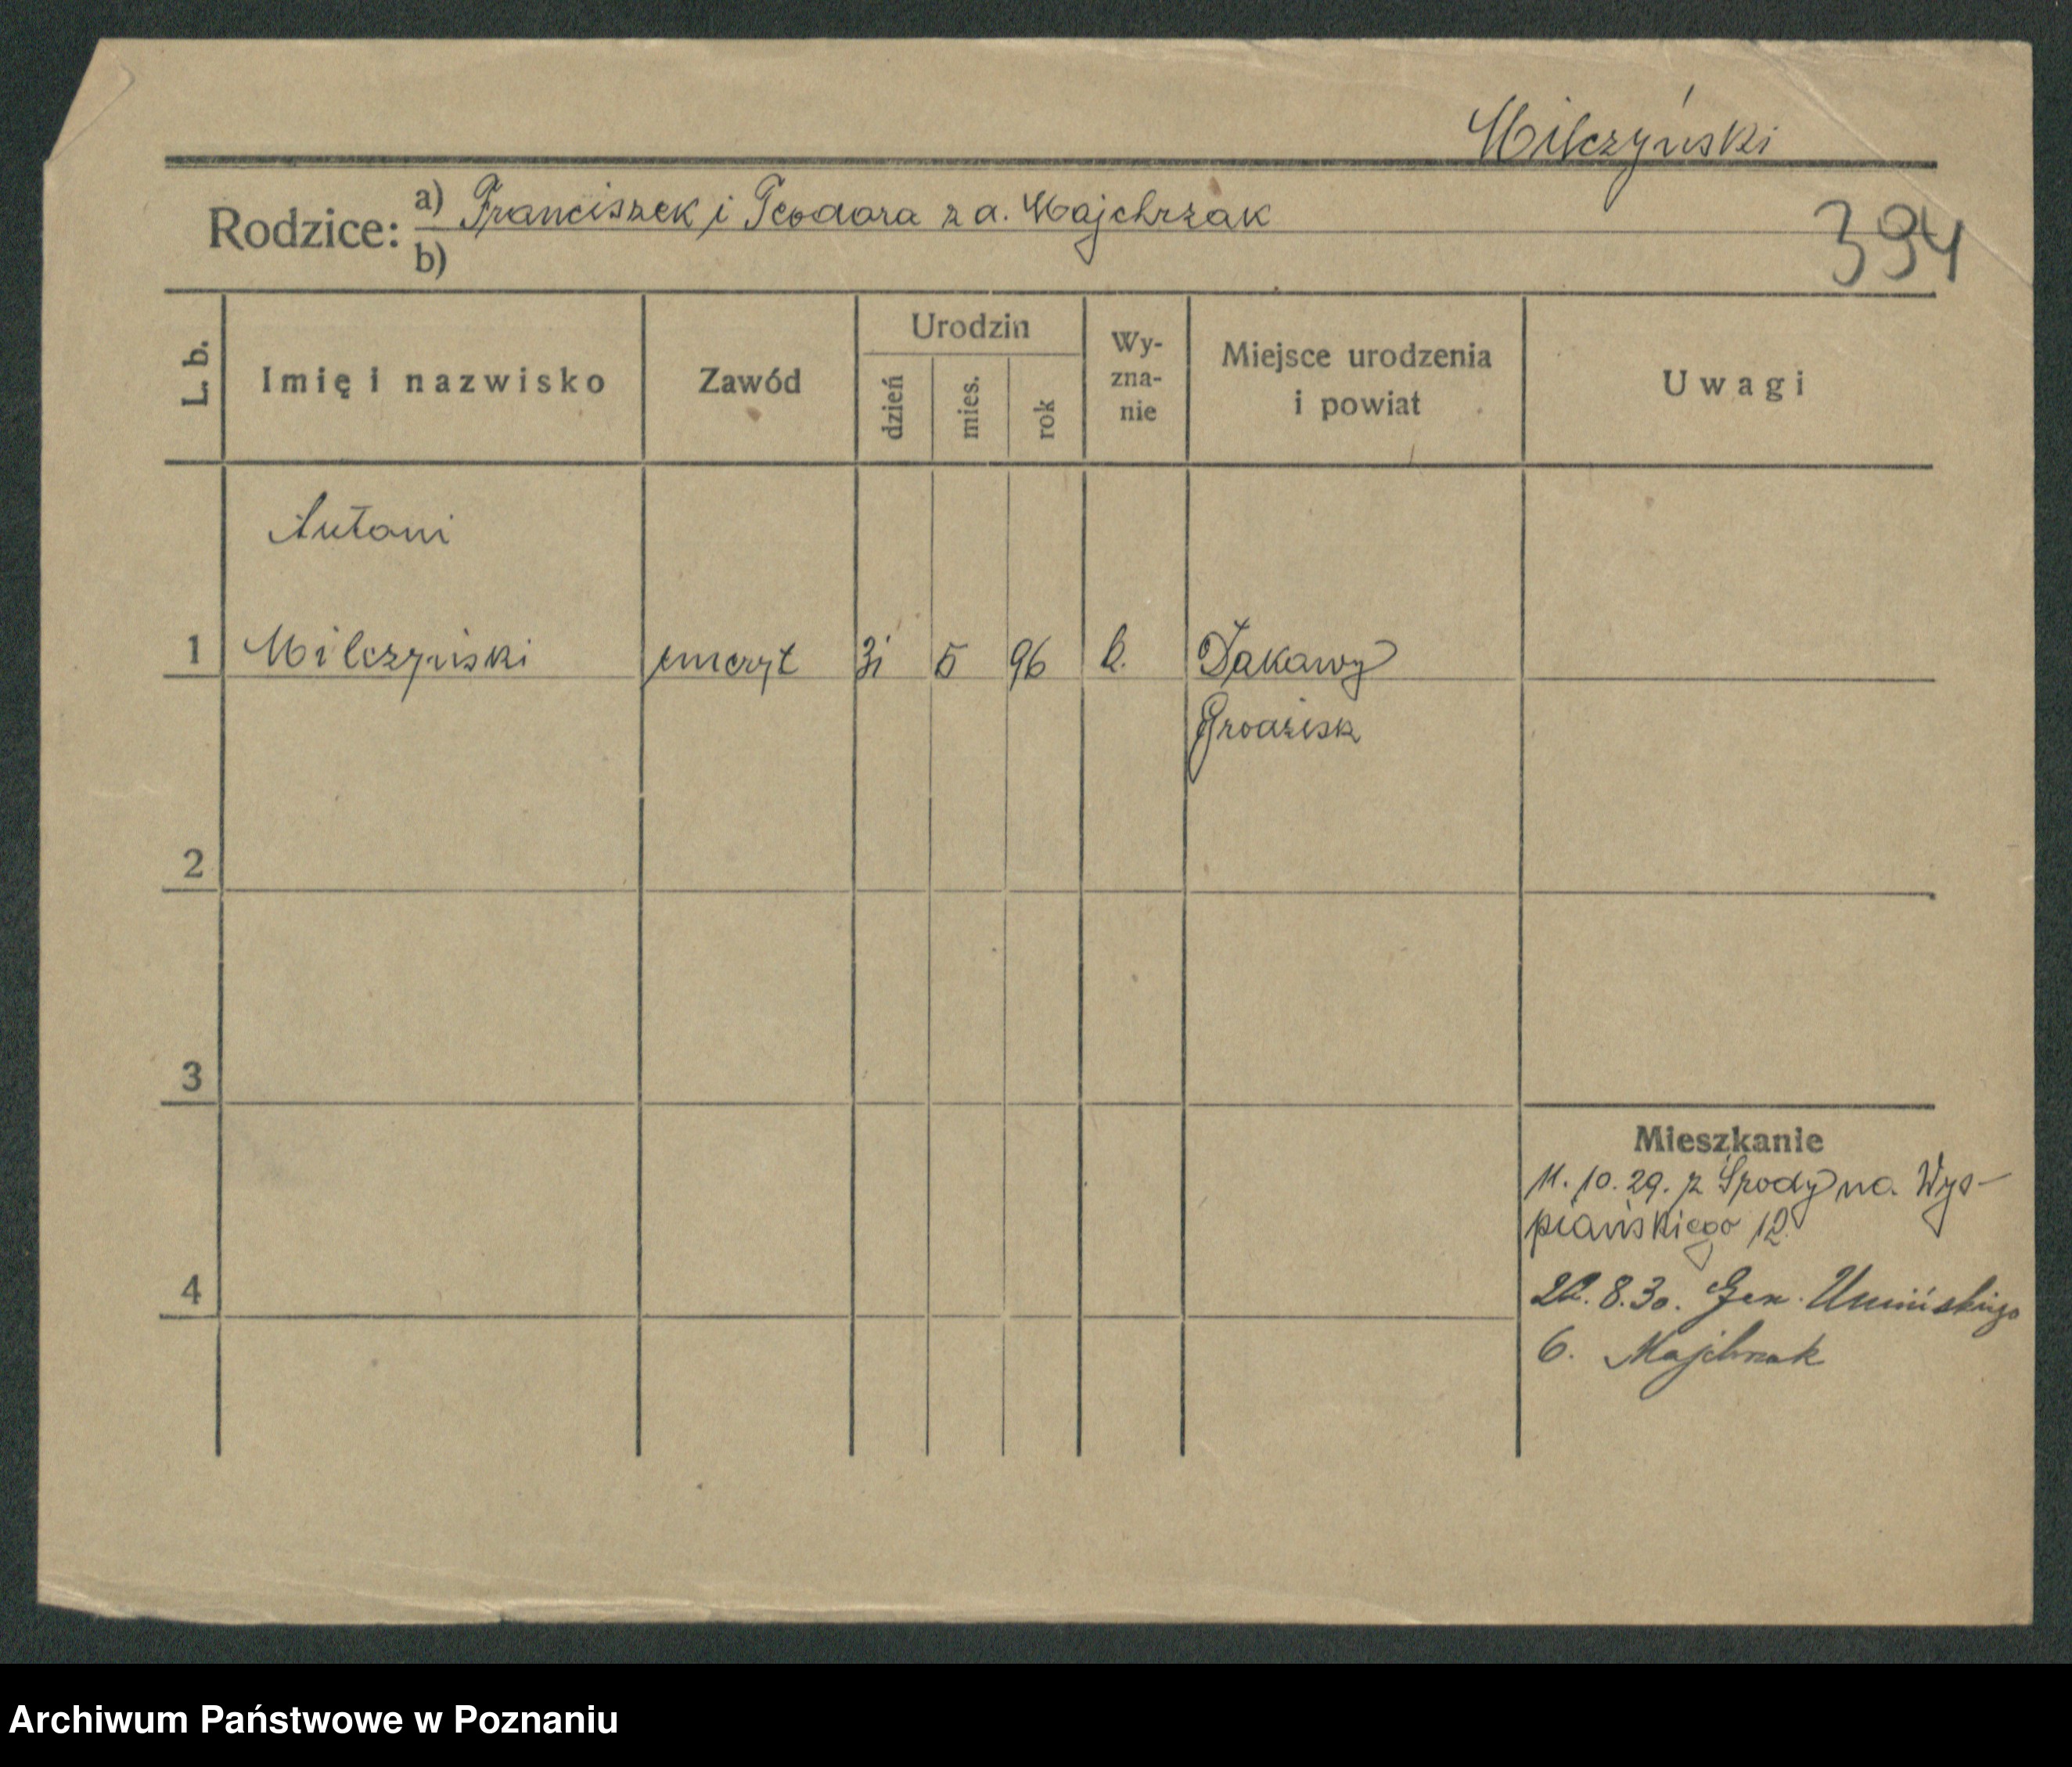 Milczyński
Rodzice: a) Franciszek i Teodora z d. Majchrzak
b)
394
L. b.
Imię i nazwisko
Zawód
Urodzin
dzień
mies.
rok
Wy-
zna-
nie
Miejsce urodzenia
i powiat
Uwagi
Antoni
1 Milczyński emeryt 31 5 96 k. Dakowy
Grodzisk
2
3
4
Mieszkanie
11. 10. 29. z Środy na Wys-
piańskiego 12
8. 30. Gen. Umińskiego
6. Majchrzak
Archiwum Państwowe w Poznaniu